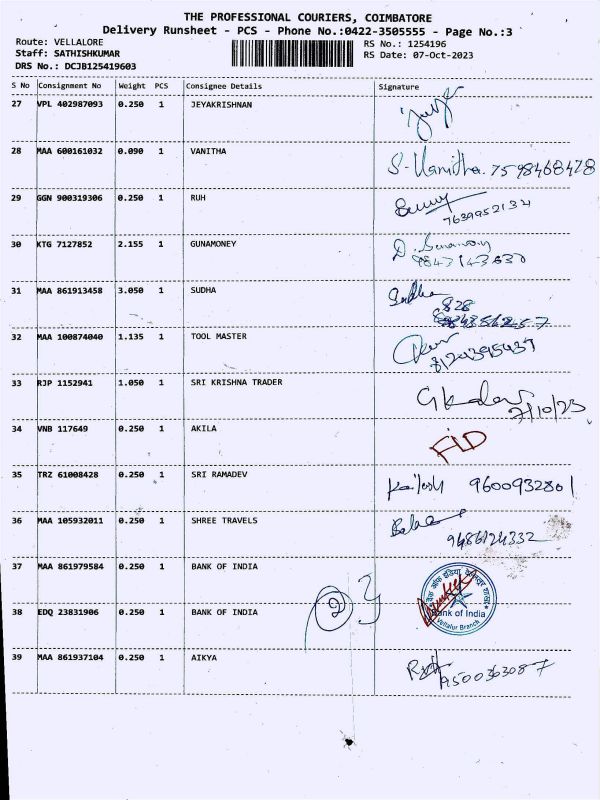 THE PROFESSIONAL COURIERS, COIMBATORE
Delivery Runsheet - PCS - Phone No.:0422-3505555 - Page No.:3
Route: VELLALORE
RS No.: 1254196
Staff: SATHISHKUMAR
RS Date: 07-Oct-2023
DRS No.: DCJB125419603
S No Consignment No Weight PCS Consignee Details Signature
27 VPL 402987093 0.250 1 JEYAKRISHNAN
28 MAA 600161032 0.090 1 VANITHA S-Vanitha. 7598468478
29 GGN 900319306 0.250 1 RUH
7639952134
30 KTG 7127852 2.155 1 GUNAMONEY
9843143830
31 MAA 861913458 3.050 1 SUDHA Sudha
32 MAA 100874040 1.135 1 TOOL MASTER
8124395437
33 RJP 1152941 1.050 1 SRI KRISHNA TRADER
7/10/23
34 VNB 117649 0.250 1 AKILA
35 TRZ 61008428 0.250 1 SRI RAMADEV Kailesh 9600932801
36 MAA 105932011 0.250 1 SHREE TRAVELS
9486124332
37 MAA 861979584 0.250 1 BANK OF INDIA
Bank of India
Vellalur Branch
38 EDQ 23831906 0.250 1 BANK OF INDIA
39 MAA 861937104 0.250 1 AIKYA
9500363087